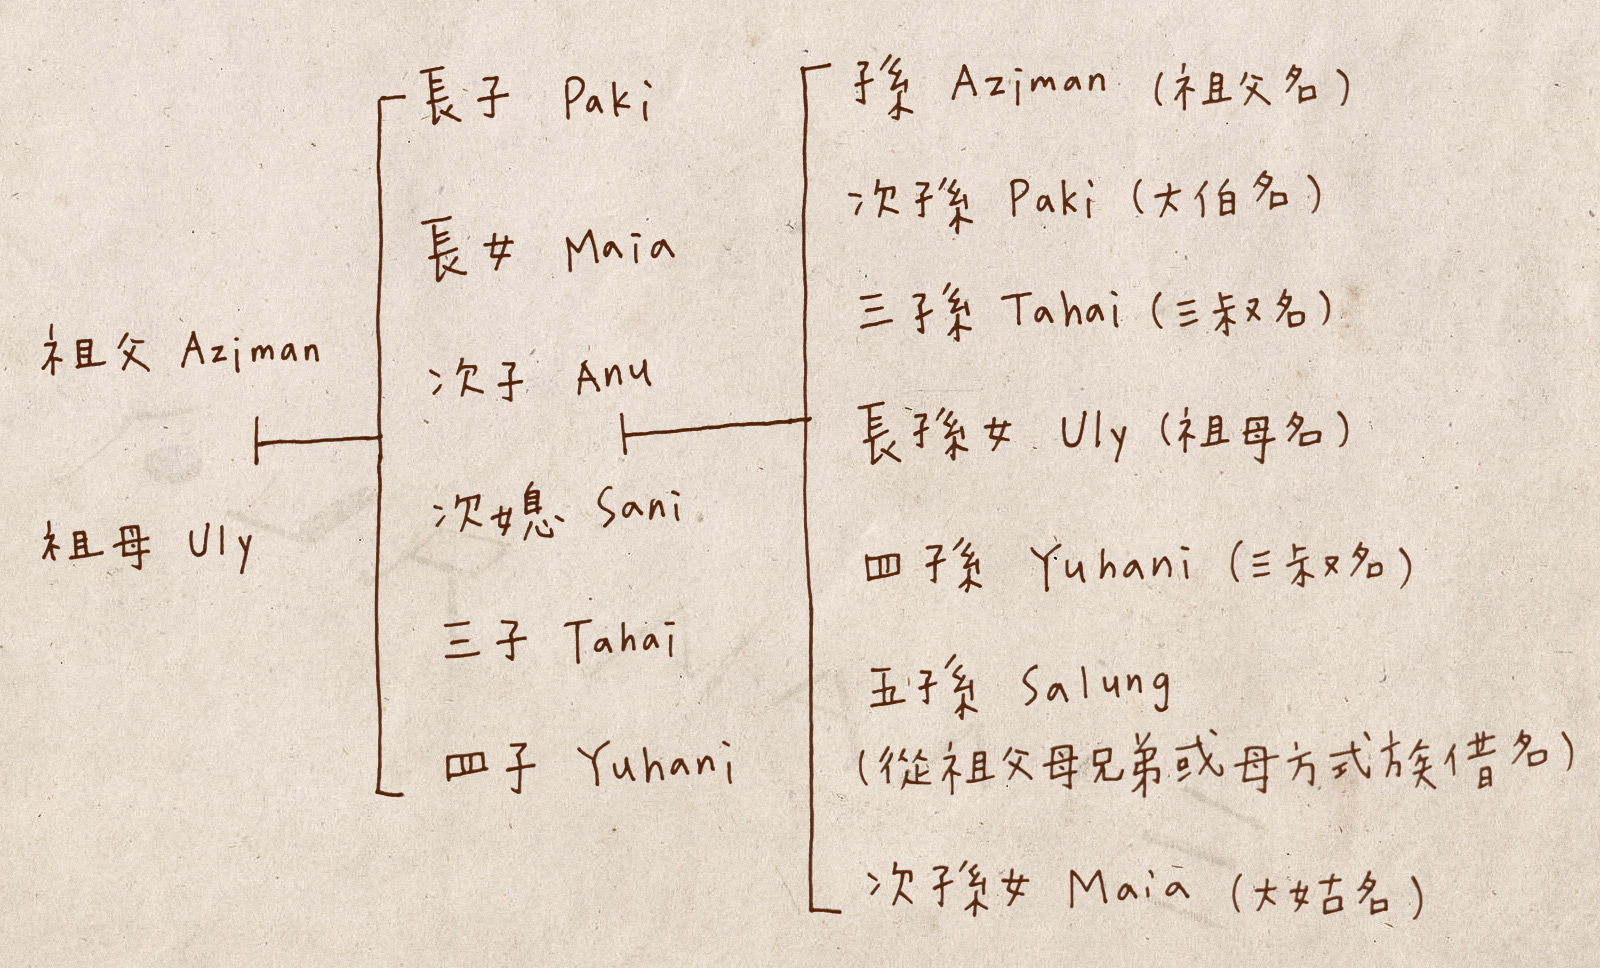 祖父 Aziman
祖母 Uly
長子 Paki
長女 Maia
次子 Anu
次媳 Sani
三子 Tahai
四子 Yuhani
孫 Aziman (祖父名)
次孫 Paki (大伯名)
三孫 Tahai (三叔名)
長孫女 Uly (祖母名)
四孫 Yuhani (三叔名)
五孫 Salung
(從祖父母兄弟或母方式族借名)
次孫女 Maia (大姑名)